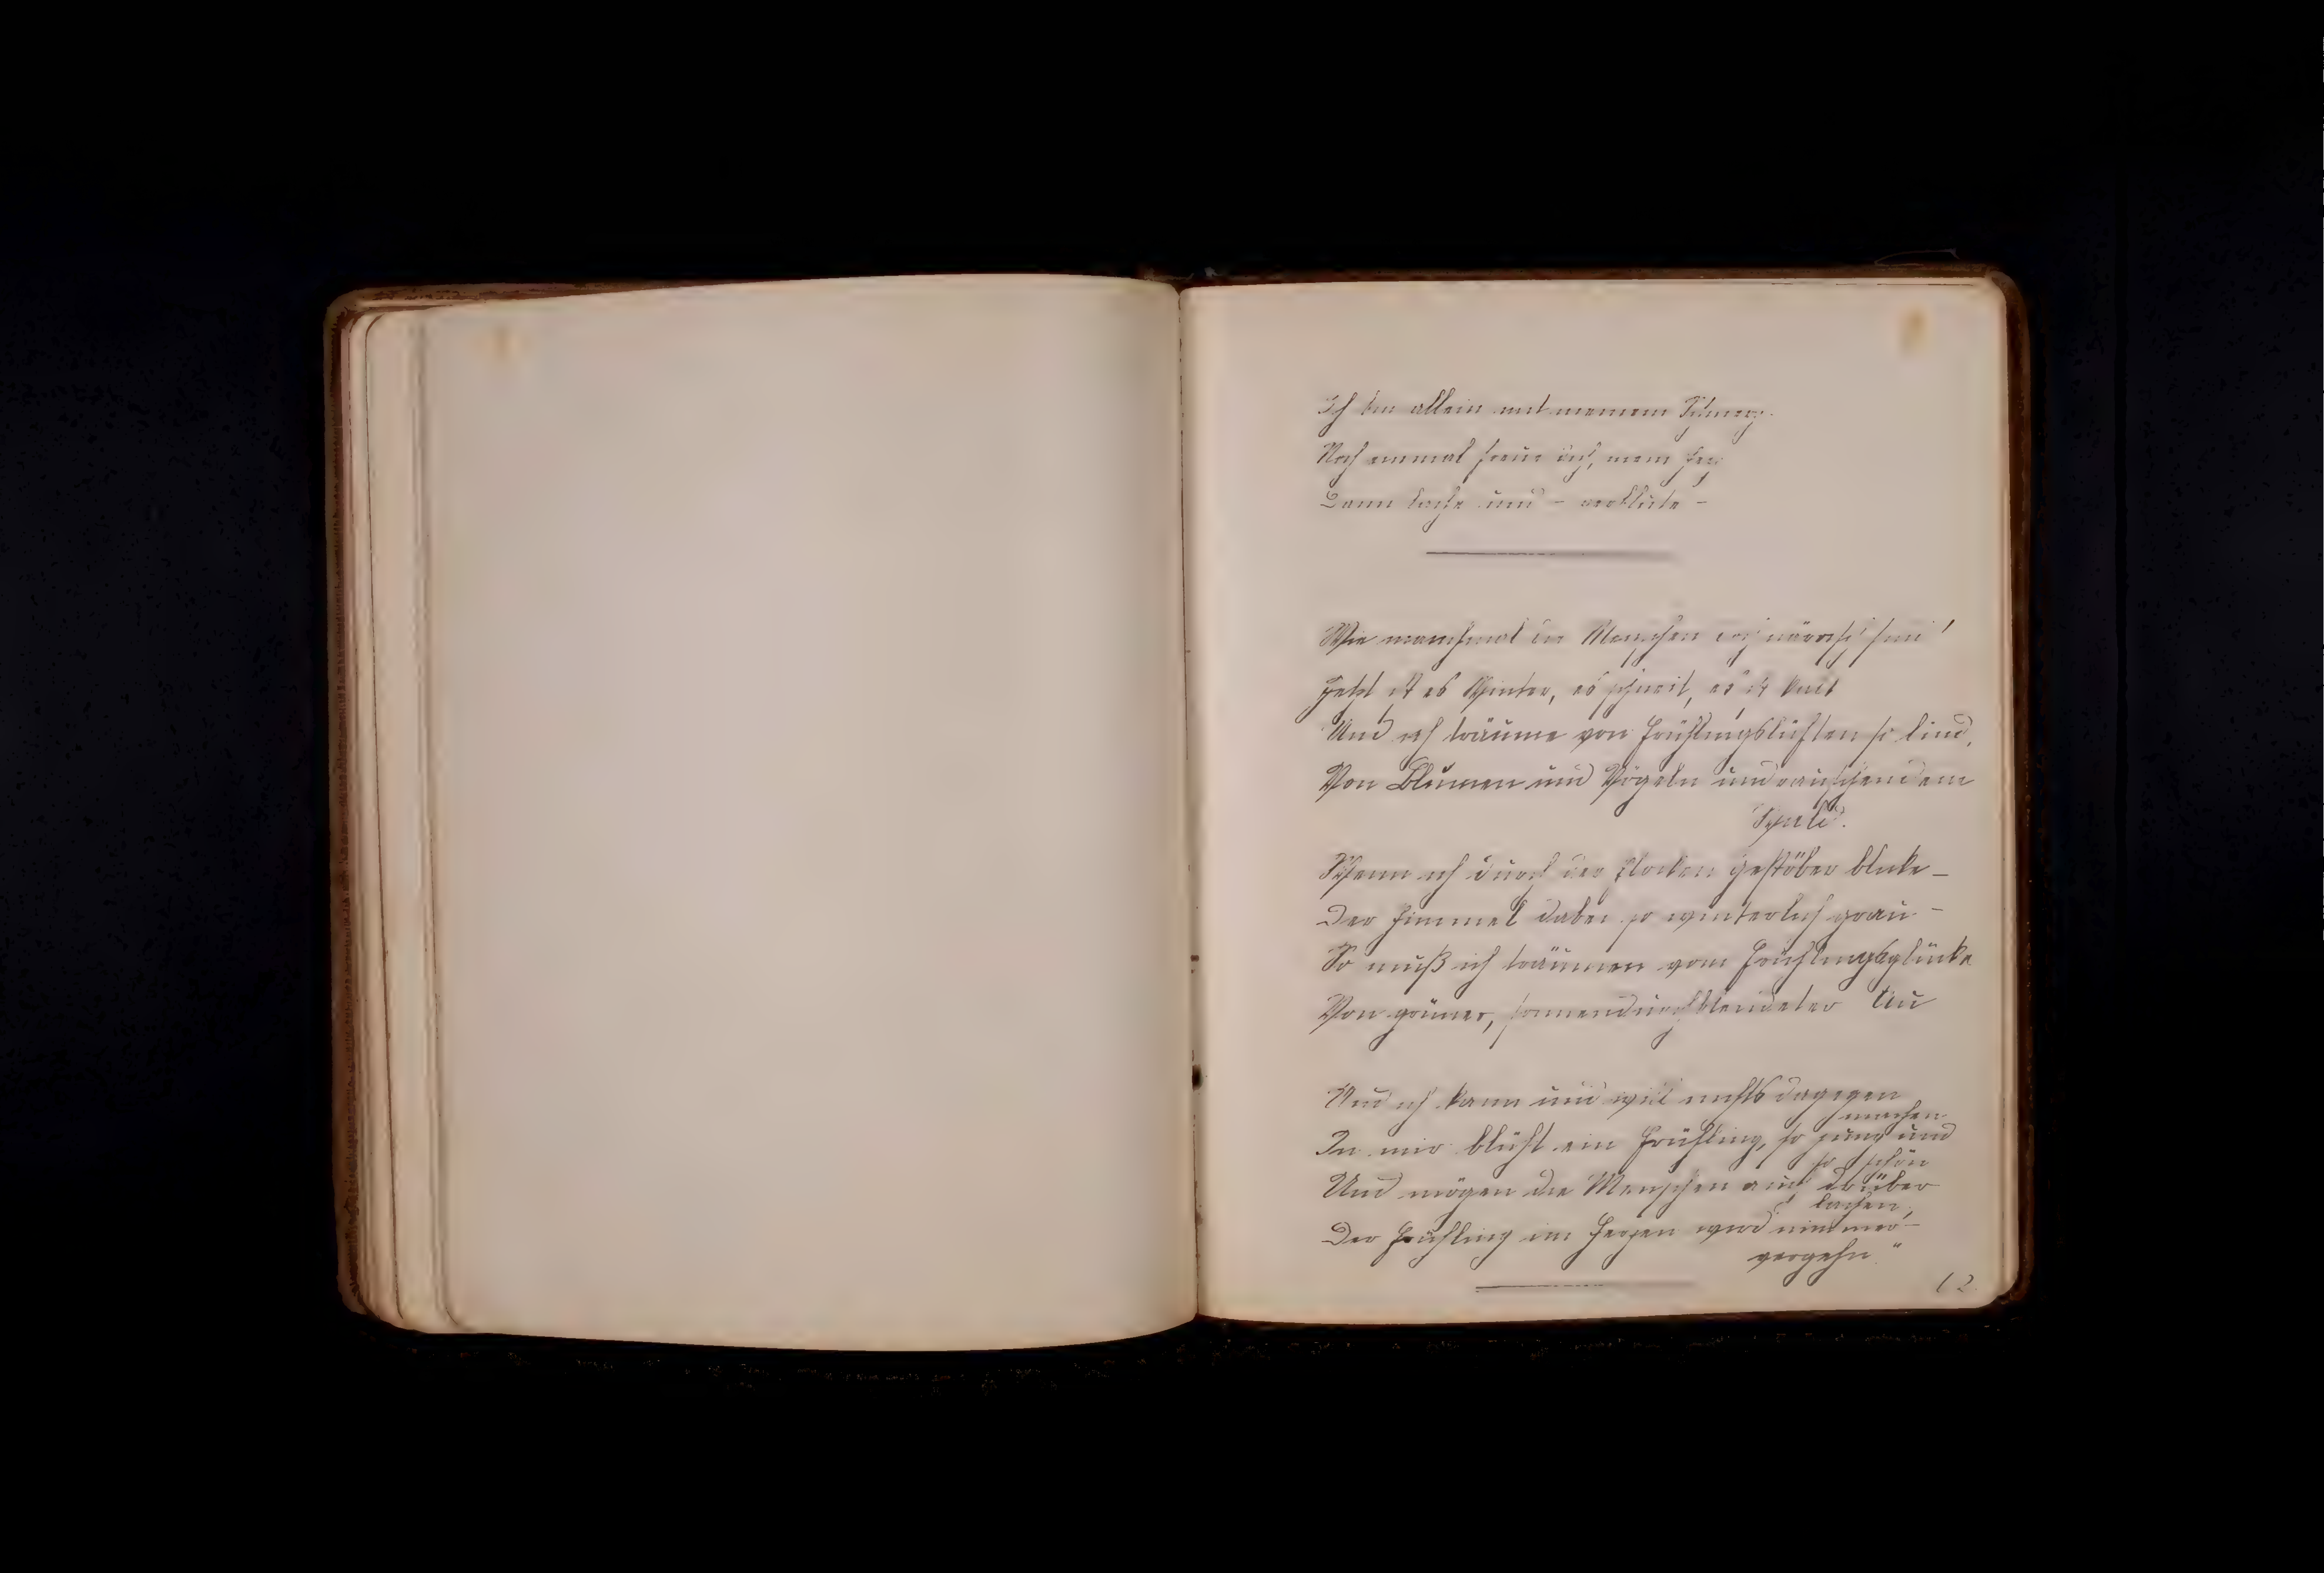 Ich bin allein mit meinem Schmerz.
Noch einmal freue dich, mein Herz
Dann lache und – verblute –
Wie manchmal die Menschen doch närrisch sind!
Jetzt ist es Winter, es schneit, es ist kalt
Und ich träume von Frühlingslüften so lind,
Von Blumen und Vögeln und rauschendem
Wenn ich durch der Flocken Gestöber blicke –
Der Himmel dabei so winterlich grau –
So muß ich träumen vom Frühlingsglücke
Von grüner, sonnendurchblendeter Au
Und ich kann und will nichts dagegen
machen
In mir blüht ein Frühling, so jung und
so schön
Und mögen die Menschen auch drüber
lachen,
Der Frühling im Herzen wird nimmer –
vergehn"
12